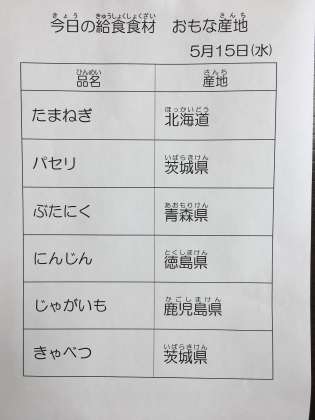 今日の給食食材　おもな産地
5月15日(水)
品名　産地
たまねぎ　北海道
パセリ　茨城県
ぶたにく　青森県
にんじん　徳島県
じゃがいも　鹿児島県
きゃべつ　茨城県